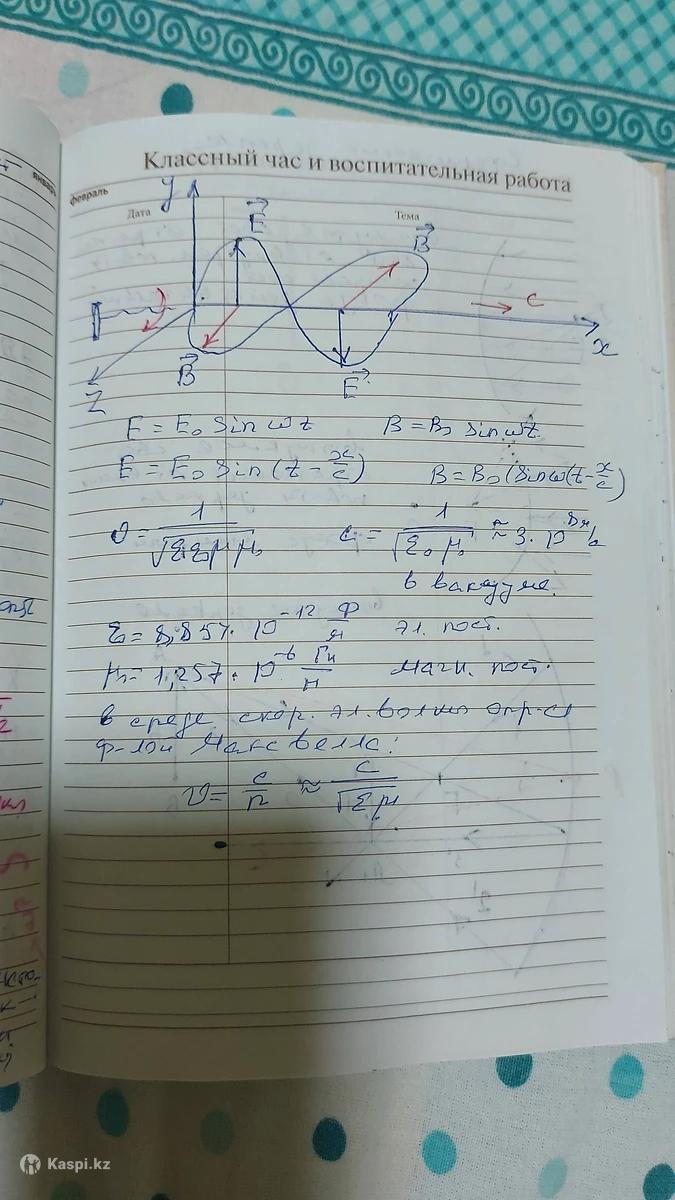 январь
Классный час и воспитательная работа
февраль
Дата
Тема
y
E⃗
B⃗
c
B⃗
E⃗
x
Z
E = E₀ sin ωt B = B₀ sin ωt
E = E₀ sin (t - x/c) B = B₀ (sin ω(t - x/c)
υ = 1/√(εε₀μμ₀) c = 1/√(ε₀μ₀) ≈ 3·10⁸ м/с
в вакууме.
ε₀ = 8,857·10⁻¹² Ф/м эл. пост.
μ₀ = 1,257·10⁻⁶ Гн/м магн. пост.
в среде скор. эл. волны опр-ся
ф-лой Максвелла:
υ = c/n ≈ c/√(εμ)
Kaspi.kz